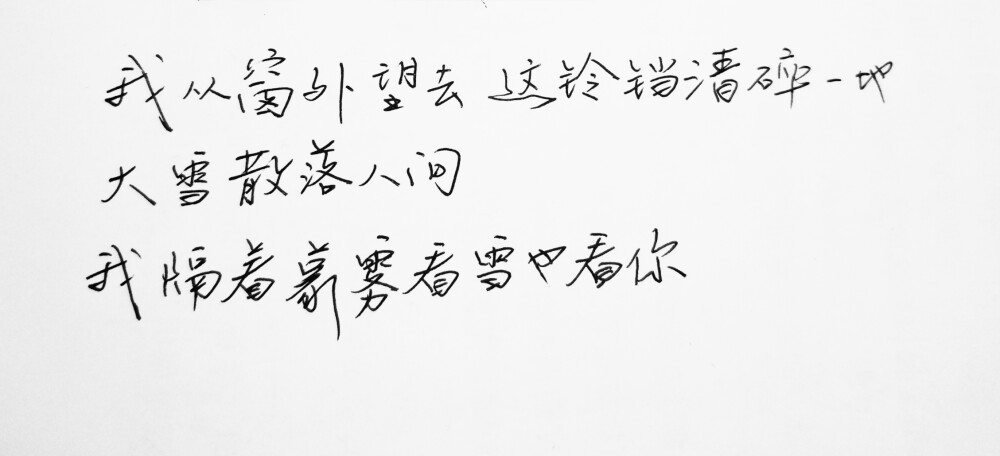 我从窗外望去 这铃铛清碎一地
大雪散落人间
我隔着暮雾看雪也看你